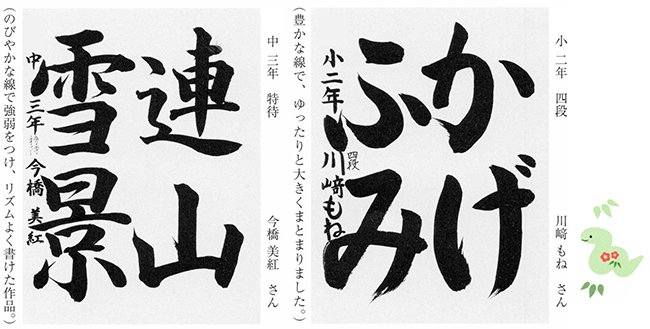 小二年 四段 川﨑 もね さん
かげ
ふみ
小二年 四段 川﨑もね
（豊かな線で、ゆったりと大きくまとまりました。）
中三年 特待 今橋 美紅 さん
連山
雪景
中三年 今橋美紅
（のびやかな線で強弱をつけ、リズムよく書けた作品。）